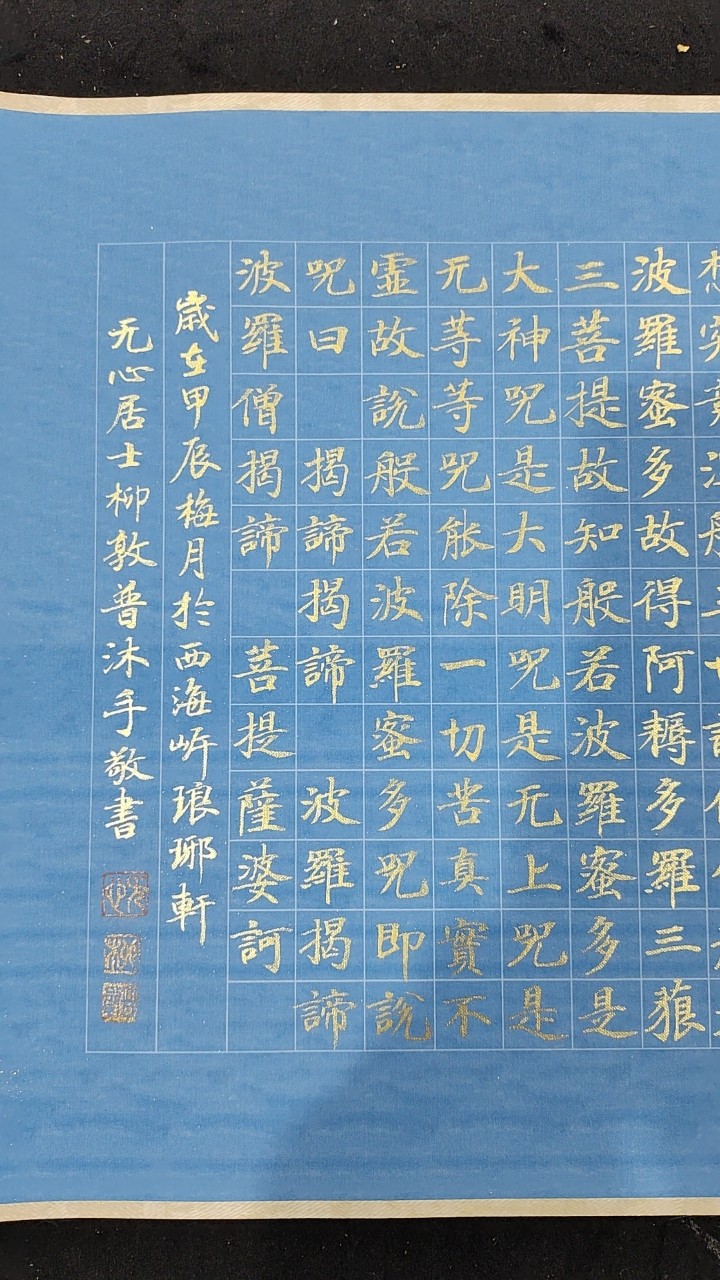 波羅蜜多故得阿耨多羅三藐
三菩提故知般若波羅蜜多是
大神呪是大明呪是无上呪是
无等等呪能除一切苦真實不
虛故說般若波羅蜜多呪即說
呪曰 揭諦揭諦 波羅揭諦
波羅僧揭諦 菩提薩婆訶
歲在甲辰梅月於西海岍琅琊軒
无心居士柳敦普沐手敬書